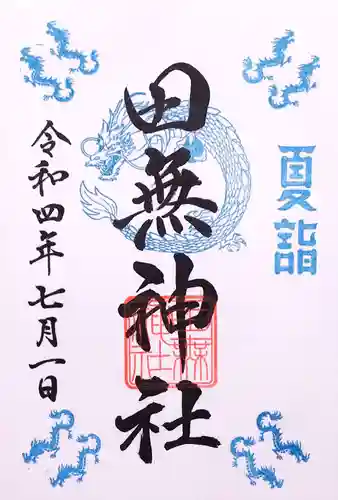 夏詣
田無神社
令和四年七月一日
田無神社